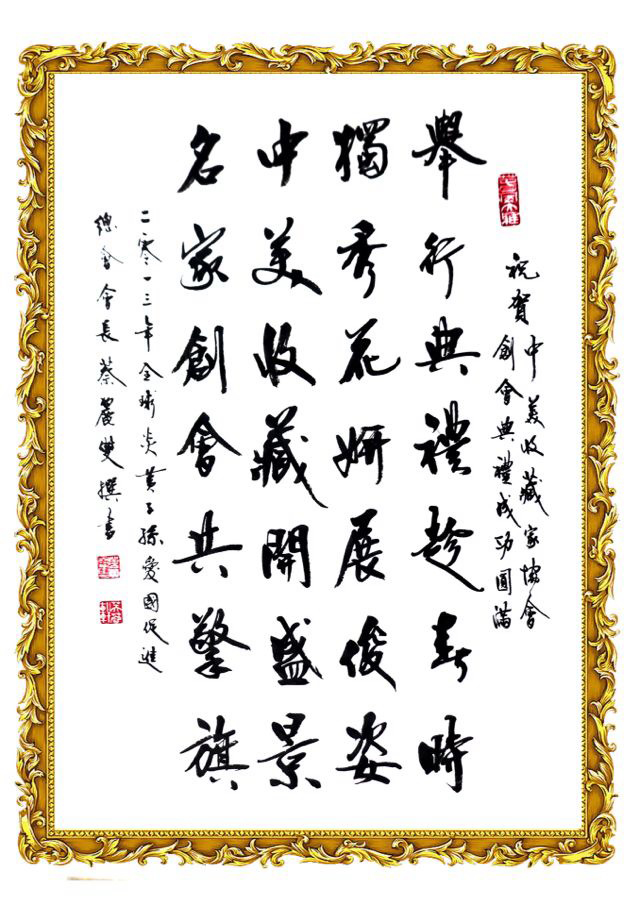 祝賀中美收藏家協會
創會典禮成功圓滿
舉行典禮趁春時
獨秀花妍展俊姿
中美收藏開盛景
名家創會共擎旗
二零一三年全球炎黃子孫愛國促進
總會會長蔡麗雙撰書